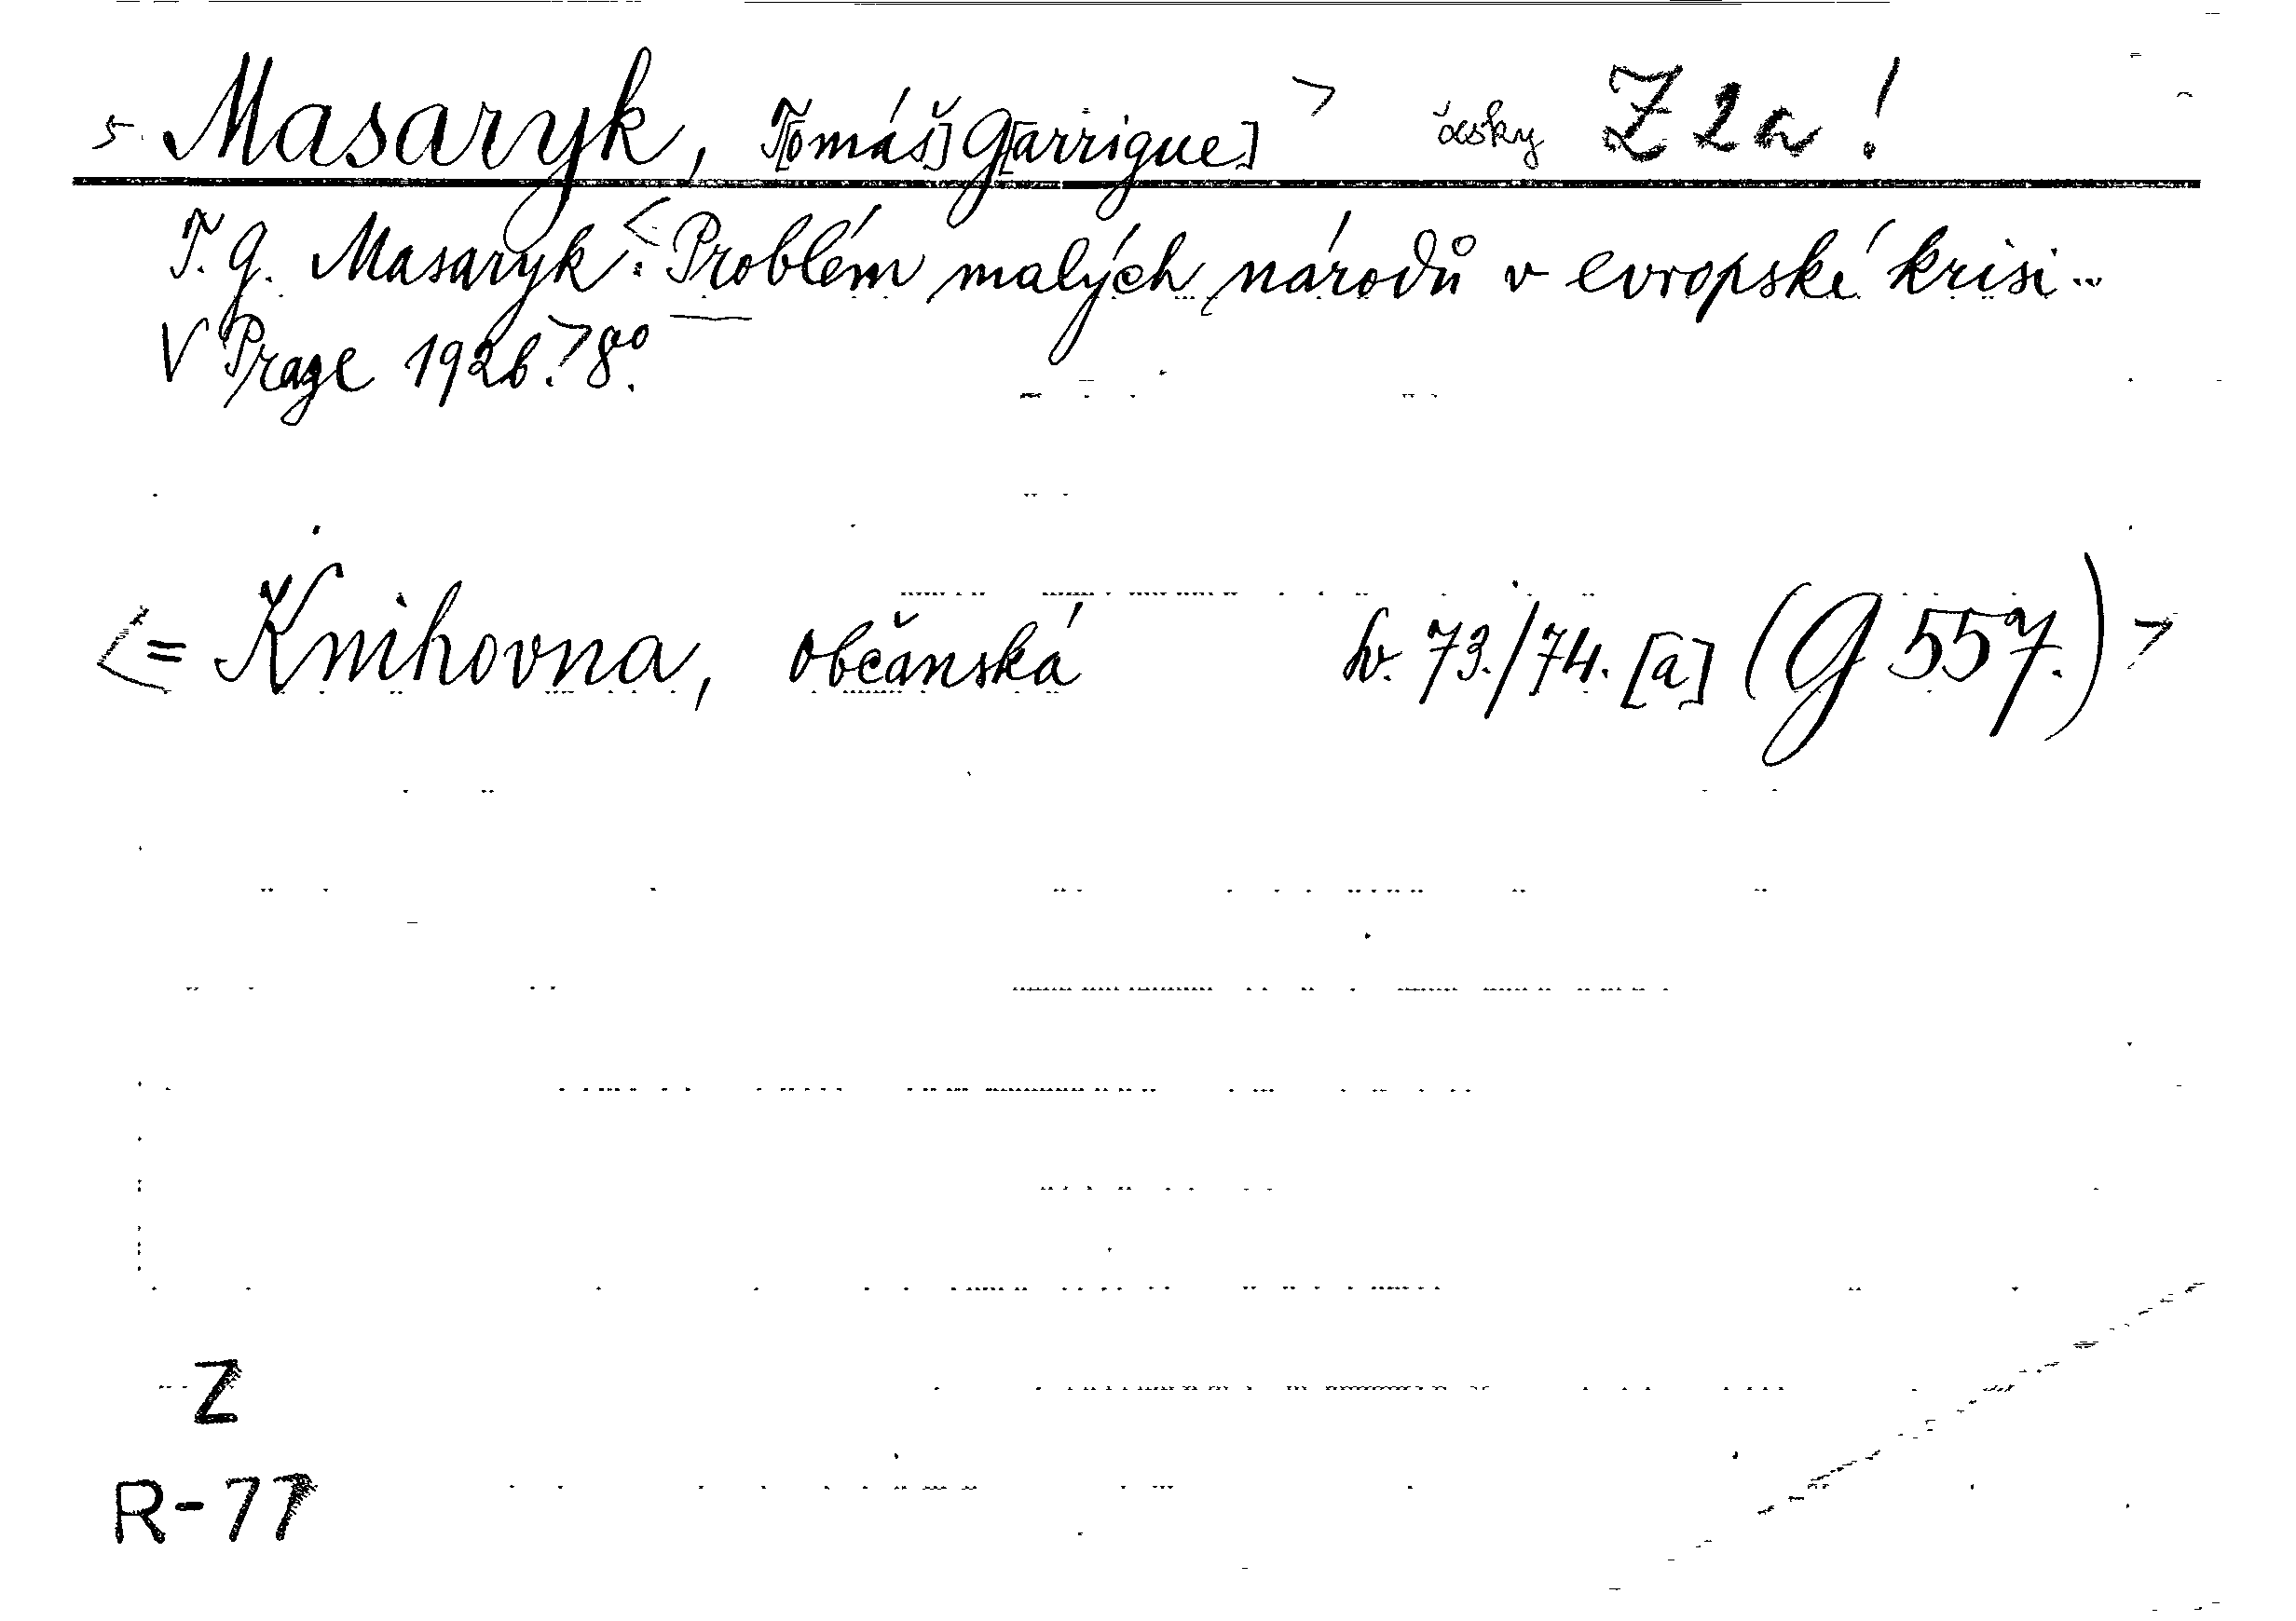 < Masaryk, T[omáš] G[arrigue] > česky Z 2a!
T. G. Masaryk: < Problém malých národů v evropské krisi..
V Praze 1926. > 8º.
<= Knihovna, občanská sv. 73./74. [a] (G 557.) >
Z
R-77